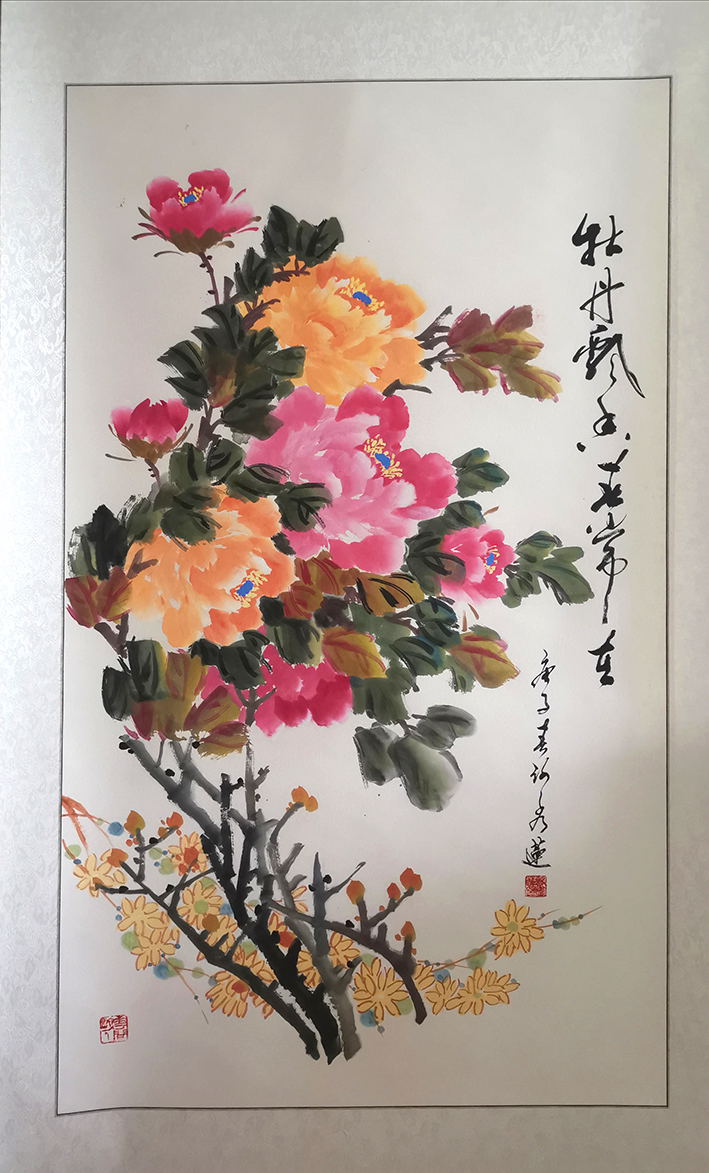 牡丹飘香花常在
庚子春秀蓮